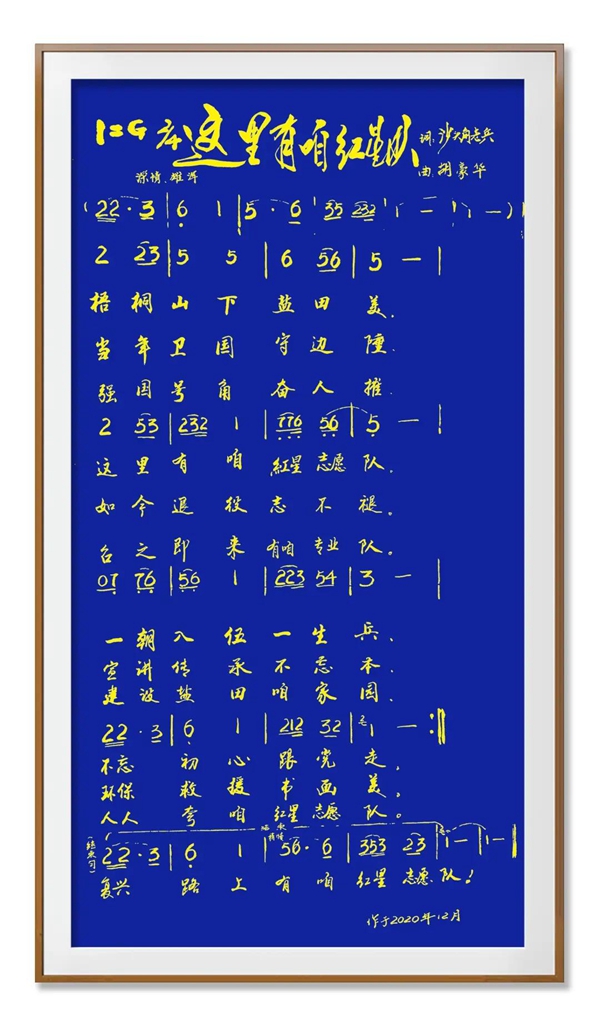 1=G 这里有咱红星队 词:沙头角老兵
深情、雄浑 曲 胡豪华
(22·3|6 1|5·6|35 232|1 —|1 —)|
2 23|5 5|6 56|5 —|
梧桐山下盐田美.
当年卫国守边陲.
强国号角奋人摧.
2 53|232 1|776 56|5 —|
这里有咱红星志愿队.
如今退役志不褪。
召之即来有咱专业队。
07 76|56 1|223 54|3 —|
一朝入伍一生兵.
宣讲传承不忘本.
建设盐田咱家园.
22·3|6 1|212 32|1 —:‖
不忘初心跟党走,
环保救援书画美。
人人夸咱红星志愿队。
(结束句)
22·3|6 1|56·6|353 23|1 —|1 —|
复兴路上有咱红星志愿队!
作于2020年12月